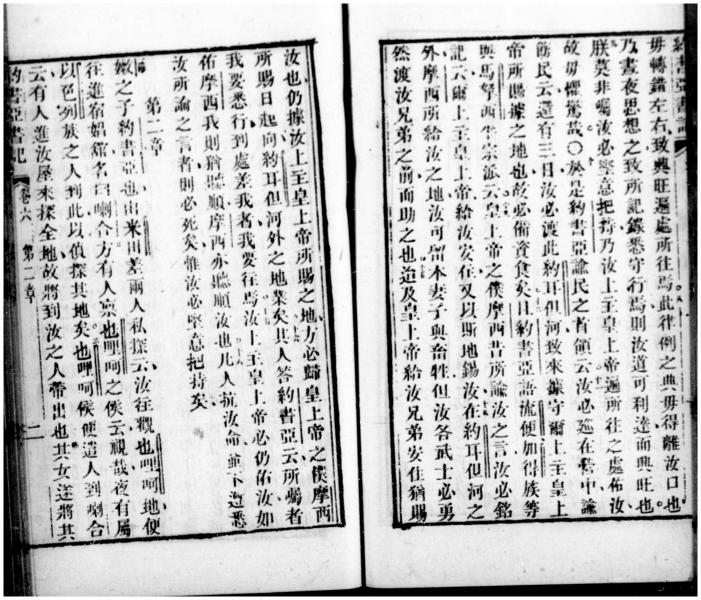 約書亞書記
毋轉錯左右致與旺遍處所往焉此律例之典毋得離汝口也
乃晝夜思想之致所記錄悉守行焉則汝道可利達而興旺也
朕莫非囑汝必堅意把持乃汝上主皇上帝遍所往之處佑汝
故毋懼驚哉○於是約書亞諭民之首領云汝必巡在營中諭
飭民云還有三日汝必渡此約耳但河致來據守爾上主皇上
帝所賜據之地也故必備資食矣且約書亞語流便加得族等
與馬拏西半宗派云皇上帝之僕摩西昔所諭汝之言汝必銘
記云爾上主皇上帝給汝安住又以斯地錫汝在約耳但河之
外摩西所給汝之地汝可留本妻子與畜牲但汝各武士必勇
然渡汝兄弟之前而助之也迨及皇上帝給汝兄弟安住猶賜
汝也仍據汝上主皇上帝所賜之地方必歸皇上帝之僕摩西
所賜日起向約耳但河外之地業矣其人答約書亞云所囑者
我要悉行到處差我者我要往焉汝上主皇上帝必仍佑汝如
佑摩西我則猶聽順摩西亦聽順汝也凡人抗汝命並不遵悉
汝所諭之言者則必死矣惟汝必堅意把持矣
第二章
嫩之子約書亞也由來田差兩人私探云汝往觀也哩呵地便
往進宿娼舘名曰喇合方有人稟也哩呵之侯云視哉夜有屬
以色列族之人到此以偵探其地矣也哩呵侯便遣人到喇合
云有人進汝屋來探全地故將到汝之人帶出也其女遂將其
約書亞書記 卷六 第二章 二